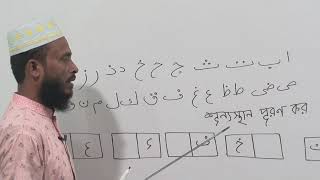 ا ب ت ث ج ح خ د ذ ر ز
ص ض ط ظ ع غ ف ق ك ل م ن
শূন্যস্থান পূরণ কর
خ ف ع